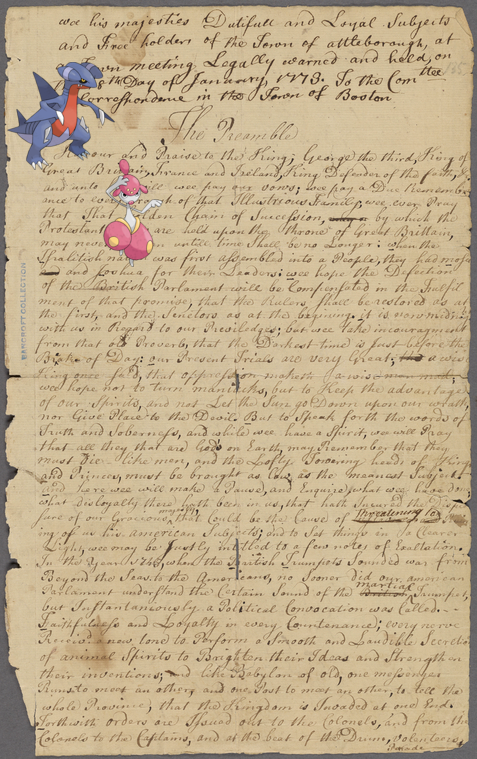 wee his majesties Dutifull and Loyal Subjects
and Free holders of the Town of attleborough, at
a Town meeting Legally warned and held, on
18th Day of January, 1773. To the Comtee
Corrospondence in the Town of Boston
The Preamble
Honour and Praise to the King; George the third, King of
Great Brittain, France and Ireland, King Defender of the faith,
and unto all wee pay our vows; wee pay a Due Remembr
ance to every branch of that Illustrious Family; wee ever Pray
that that Golden Chain of Succession, by which the
Protestant are held upon the Throne of Great Brittain,
may never untill time Shall be no Longer; when the
Israelitish na was first assembled into a People, they had moses
and Joshua for their Leaders: wee hope the Defection
of the British Parliament will be Compensated in the fulfil
ment of that promise, that the Rulers, Shall be restored as at
the first, and the Senetors as at the begining: it is now
with us in Regard to our Priviledges; but wee take incouragment
from that old Proverb, that the Darkest time is Just before the
Brake of Day; our Present Trials are very Great; a wise
King once said, that oppression maketh a wise
wee hope not to turn maniacks, but to Keep the advantage
of our Spirits, and not Let the Sun go Down upon our wrath,
nor Give Place to the Devil. But to Speak forth the words of
Truth and Soberness, and while wee have a Spirit, we will Pray
that all they that are God's on Earth, may Remember that they
must Die like men, and the Lofty Towering heads of Kings
and Princes, must be brought as Low as the meanest Subject
and here wee will make a Pause, and Enquire, what wee have done
what disloyalty there hath been in us, that hath Incured the Displea
sure of our Gracious, that could be the Cause of threatening
ing of us his american Subjects; and to Set things in a Clearer
Light, wee may be Justly intitled to a few notes of Exaltation.
In the Year 1745, when the British Trumpets Sounded war from
Beyond the Seas to the Americans, no Sooner did our american
Parliament understand the Certain Sound of the martial Trumpet,
but Instantaniously a Political Convocation was Called. -
Faithfulness and Loyalty in every Countenance; every nerve
Received a new tone to Perform a Smooth and Laudible Secretion
of animal Spirits to Brighten their Ideas and Strengthen
their inventions; and like Babylon of old, one messenger
Runs to meet an other, and one Post to meet an other, to tell the
whole Province, that the Kingdom is Invaded at one End.
Forthwith orders are Issued out to the Colonels, and from the
Colonels to the Captains, and at the beat of the Drum, volenteers,
Parade
BANCROFT COLLECTION